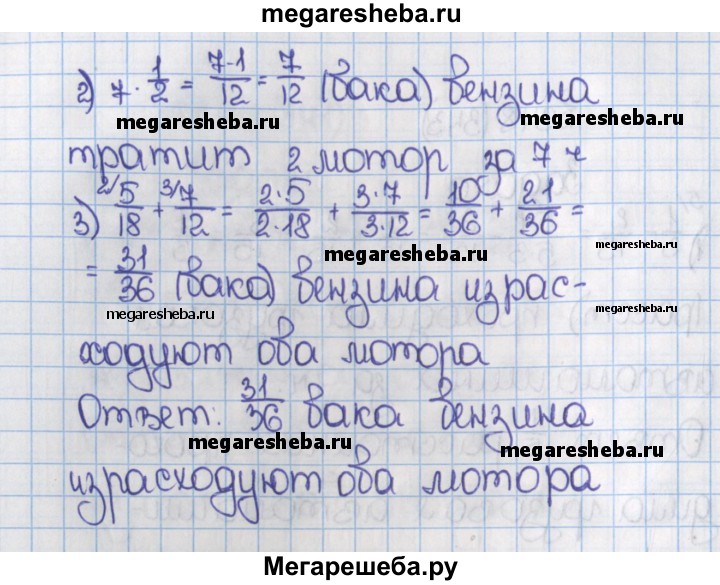 megaresheba.ru
2) 7 · 1/2 = 7·1/12 = 7/12 (бака) бензина
megaresheba.ru
megaresheba.ru
тратит 2 мотор за 7 ч
3) 2/5/18 + 3/7/12 = 2·5/2·18 + 3·7/3·12 = 10/36 + 21/36 =
megaresheba.ru
megaresheba.ru
= 31/36 (бака) бензина израс-
megaresheba.ru
megaresheba.ru
ходуют оба мотора
Ответ: 31/36 бака бензина
megaresheba.ru
megaresheba.ru
израсходуют оба мотора
Мегарешеба.ру